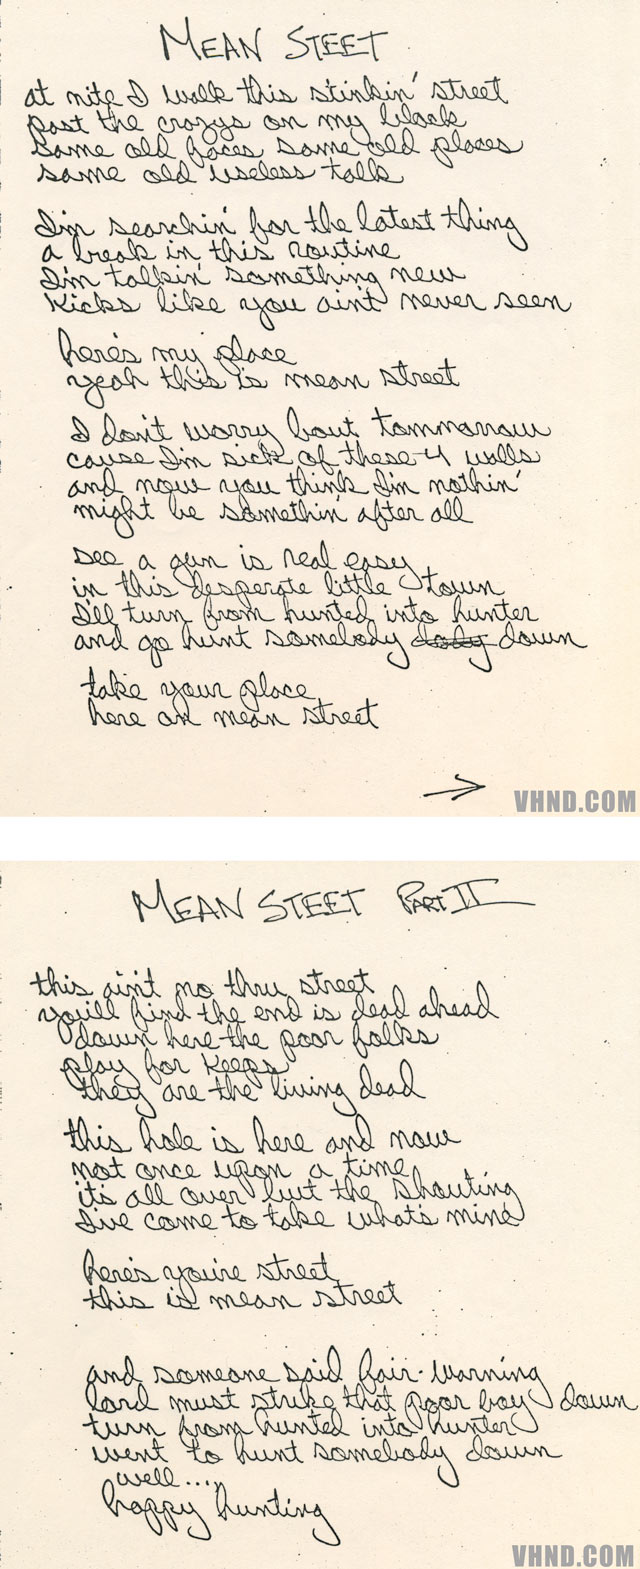 MEAN STEET
at nite I walk this stinkin' street
past the crazys on my block
same old faces same old places
same old useless talk
I'm searchin' for the latest thing
a break in this routine
I'm talkin' something new
kicks like you ain't never seen
here's my place
yeah this is mean street
I don't worry bout tommorrow
cause I'm sick of these 4 walls
and now you think I'm nothin'
might be somethin' after all
see a gun is real easy
in this desperate little town
I'll turn from hunted into hunter
and go hunt somebody dody down
take your place
here on mean street
→
VHND.COM
MEAN STEET PART II
this ain't no thru street
you'll find the end is dead ahead
down here the poor folks
play for keeps
they are the living dead
this hole is here and now
not once upon a time
it's all over but the shouting
I've come to take what's mine
here's you're street
this is mean street
and someone said fair-warning
lord must strike that poor boy down
turn from hunted into hunter
went to hunt somebody down
well....
happy hunting
VHND.COM